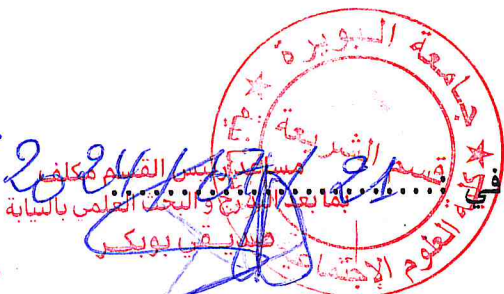 جامعة البويرة
كلية العلوم الإجتماعية
قسم الشريعة
في 21
مساعد رئيس القسم مكلف
بما بعد التدرج و البحث العلمي بالنيابة
صديقي بوبكر